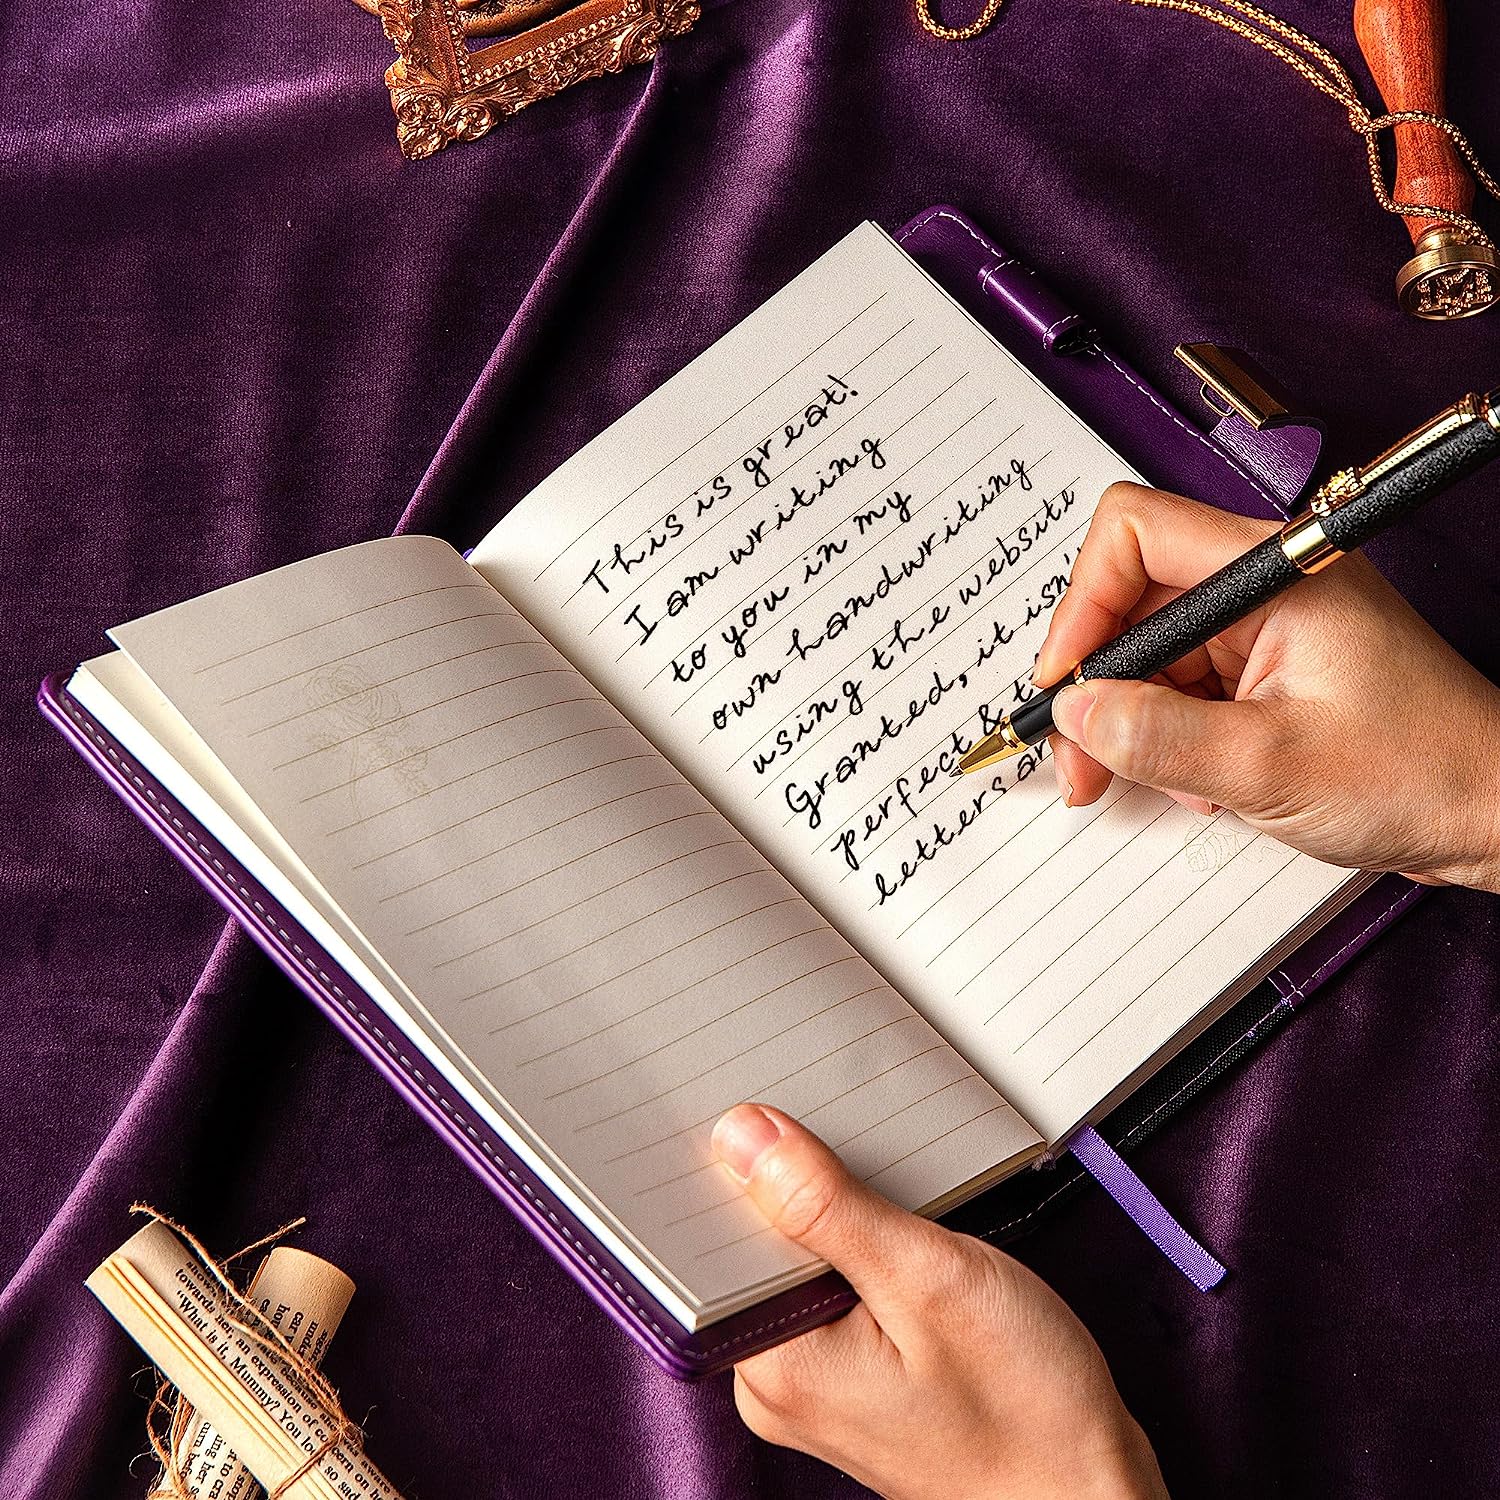 This is great!
I am writing
to you in my
own handwriting
using the website
Granted, it isn'
perfect &
letters
shows
towards her, an expression of concern on
"What is it, Mummy? You look so sad